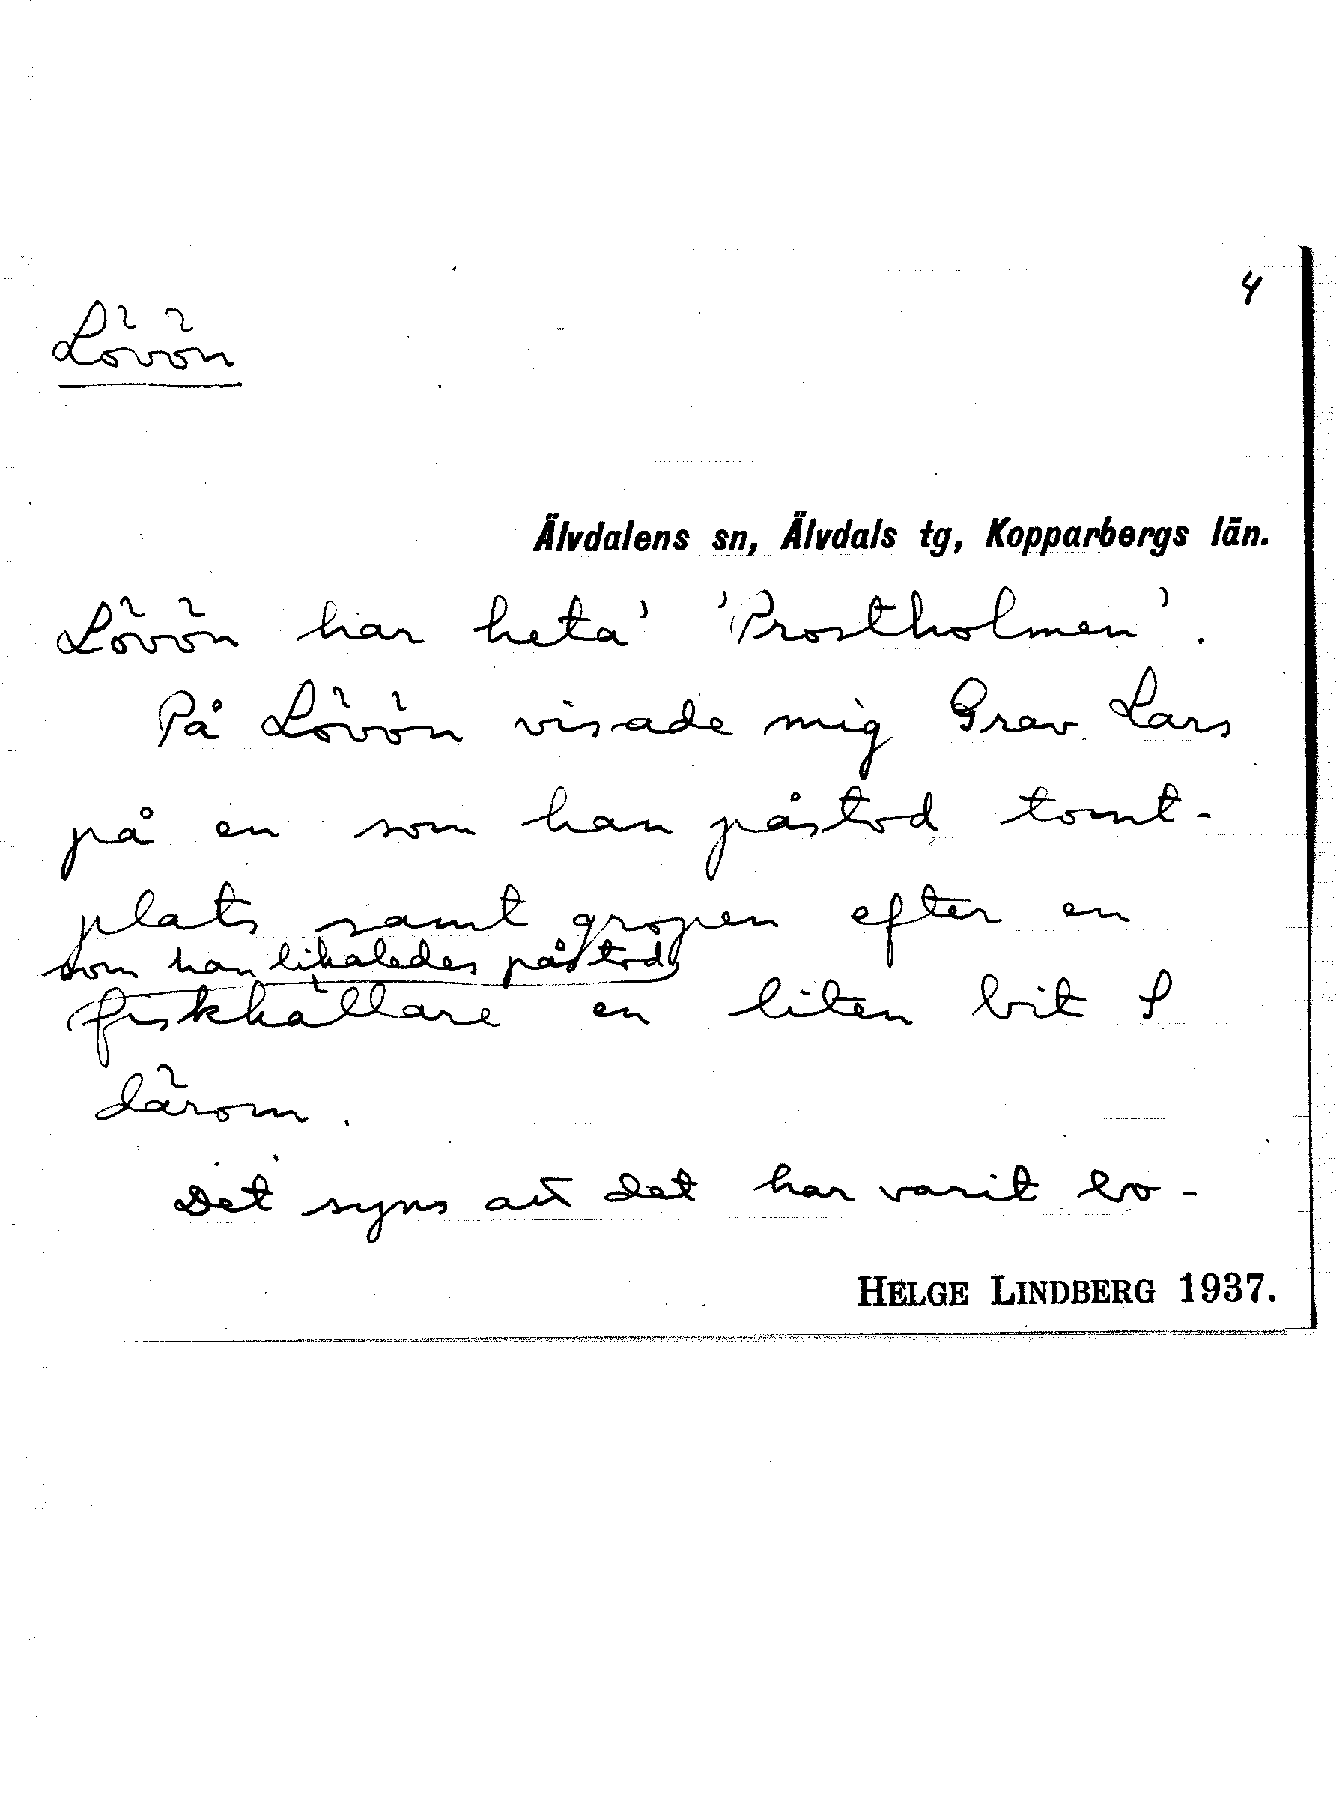 4
Lövön
Älvdalens sn, Älvdals tg, Kopparbergs län.
Lövön har heta' 'Prostholmen'.
På Lövön visade mig Grav Lars
på en som han påstod tomt-
plats samt gropen efter en
som han likaledes påstod
fiskhällare en liten bit S
därom.
Det syns att det har varit bo-
HELGE LINDBERG 1937.